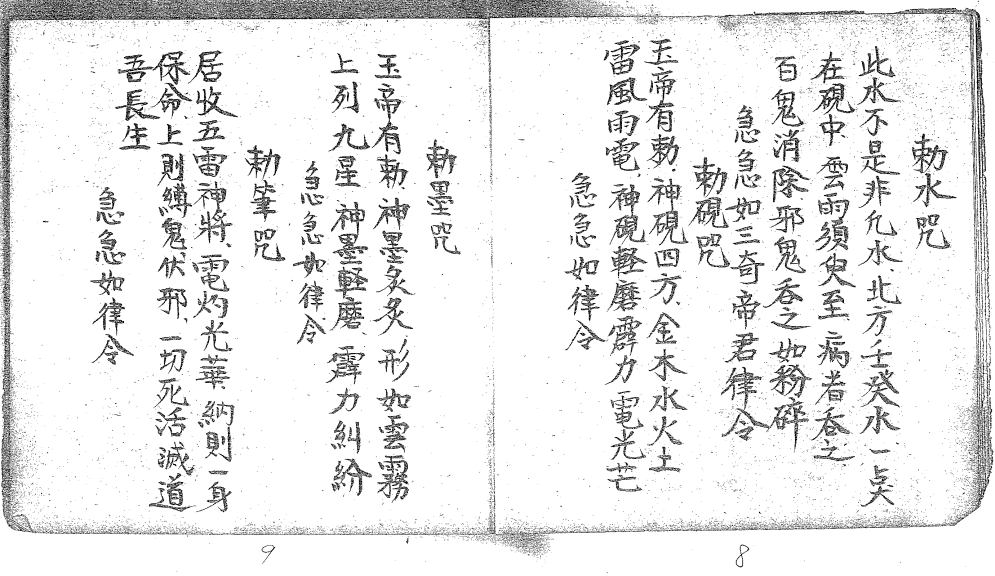 勅水咒
此水不是非凡水、北方壬癸水一点
在硯中雲雨須臾至病者吞之
百鬼消除邪鬼吞之如粉碎
急急如三奇帝君律令
勅硯咒
玉帝有勅、神硯四方、金木水火土
雷風雨電、神硯軽磨霹力電光芒
急急如律令
勅墨咒
玉帝有勅神墨炙炙、形如雲霧
上列九星神墨軽磨、霹力糾紛
急急如律令
勅筆咒
居收五雷神將、電灼光華納則一身
保命、上則縛鬼、伏邪、一切死活滅道
吾長生
急急如律令
9
8